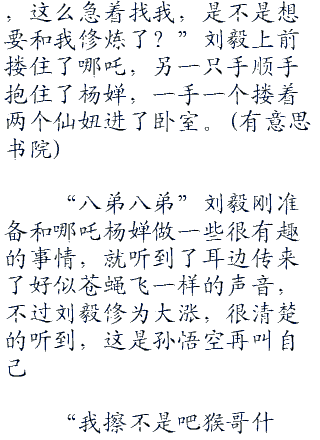 ，这么急着找我，是不是想
要和我修炼了？”刘毅上前
搂住了哪吒，另一只手顺手
抱住了杨婵，一手一个搂着
两个仙妞进了卧室。(有意思
书院)
“八弟八弟”刘毅刚准
备和哪吒杨婵做一些很有趣
的事情，就听到了耳边传来
了好似苍蝇飞一样的声音，
不过刘毅修为大涨，很清楚
的听到，这是孙悟空再叫自
己
“我擦不是吧猴哥什